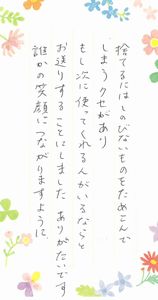 捨てるにはしのびないものをためこんで
しまうクセがあり
もし次に使ってくれる人がいるならと
お送りすることにしました ありがたいです
誰かの笑顔につながりますように